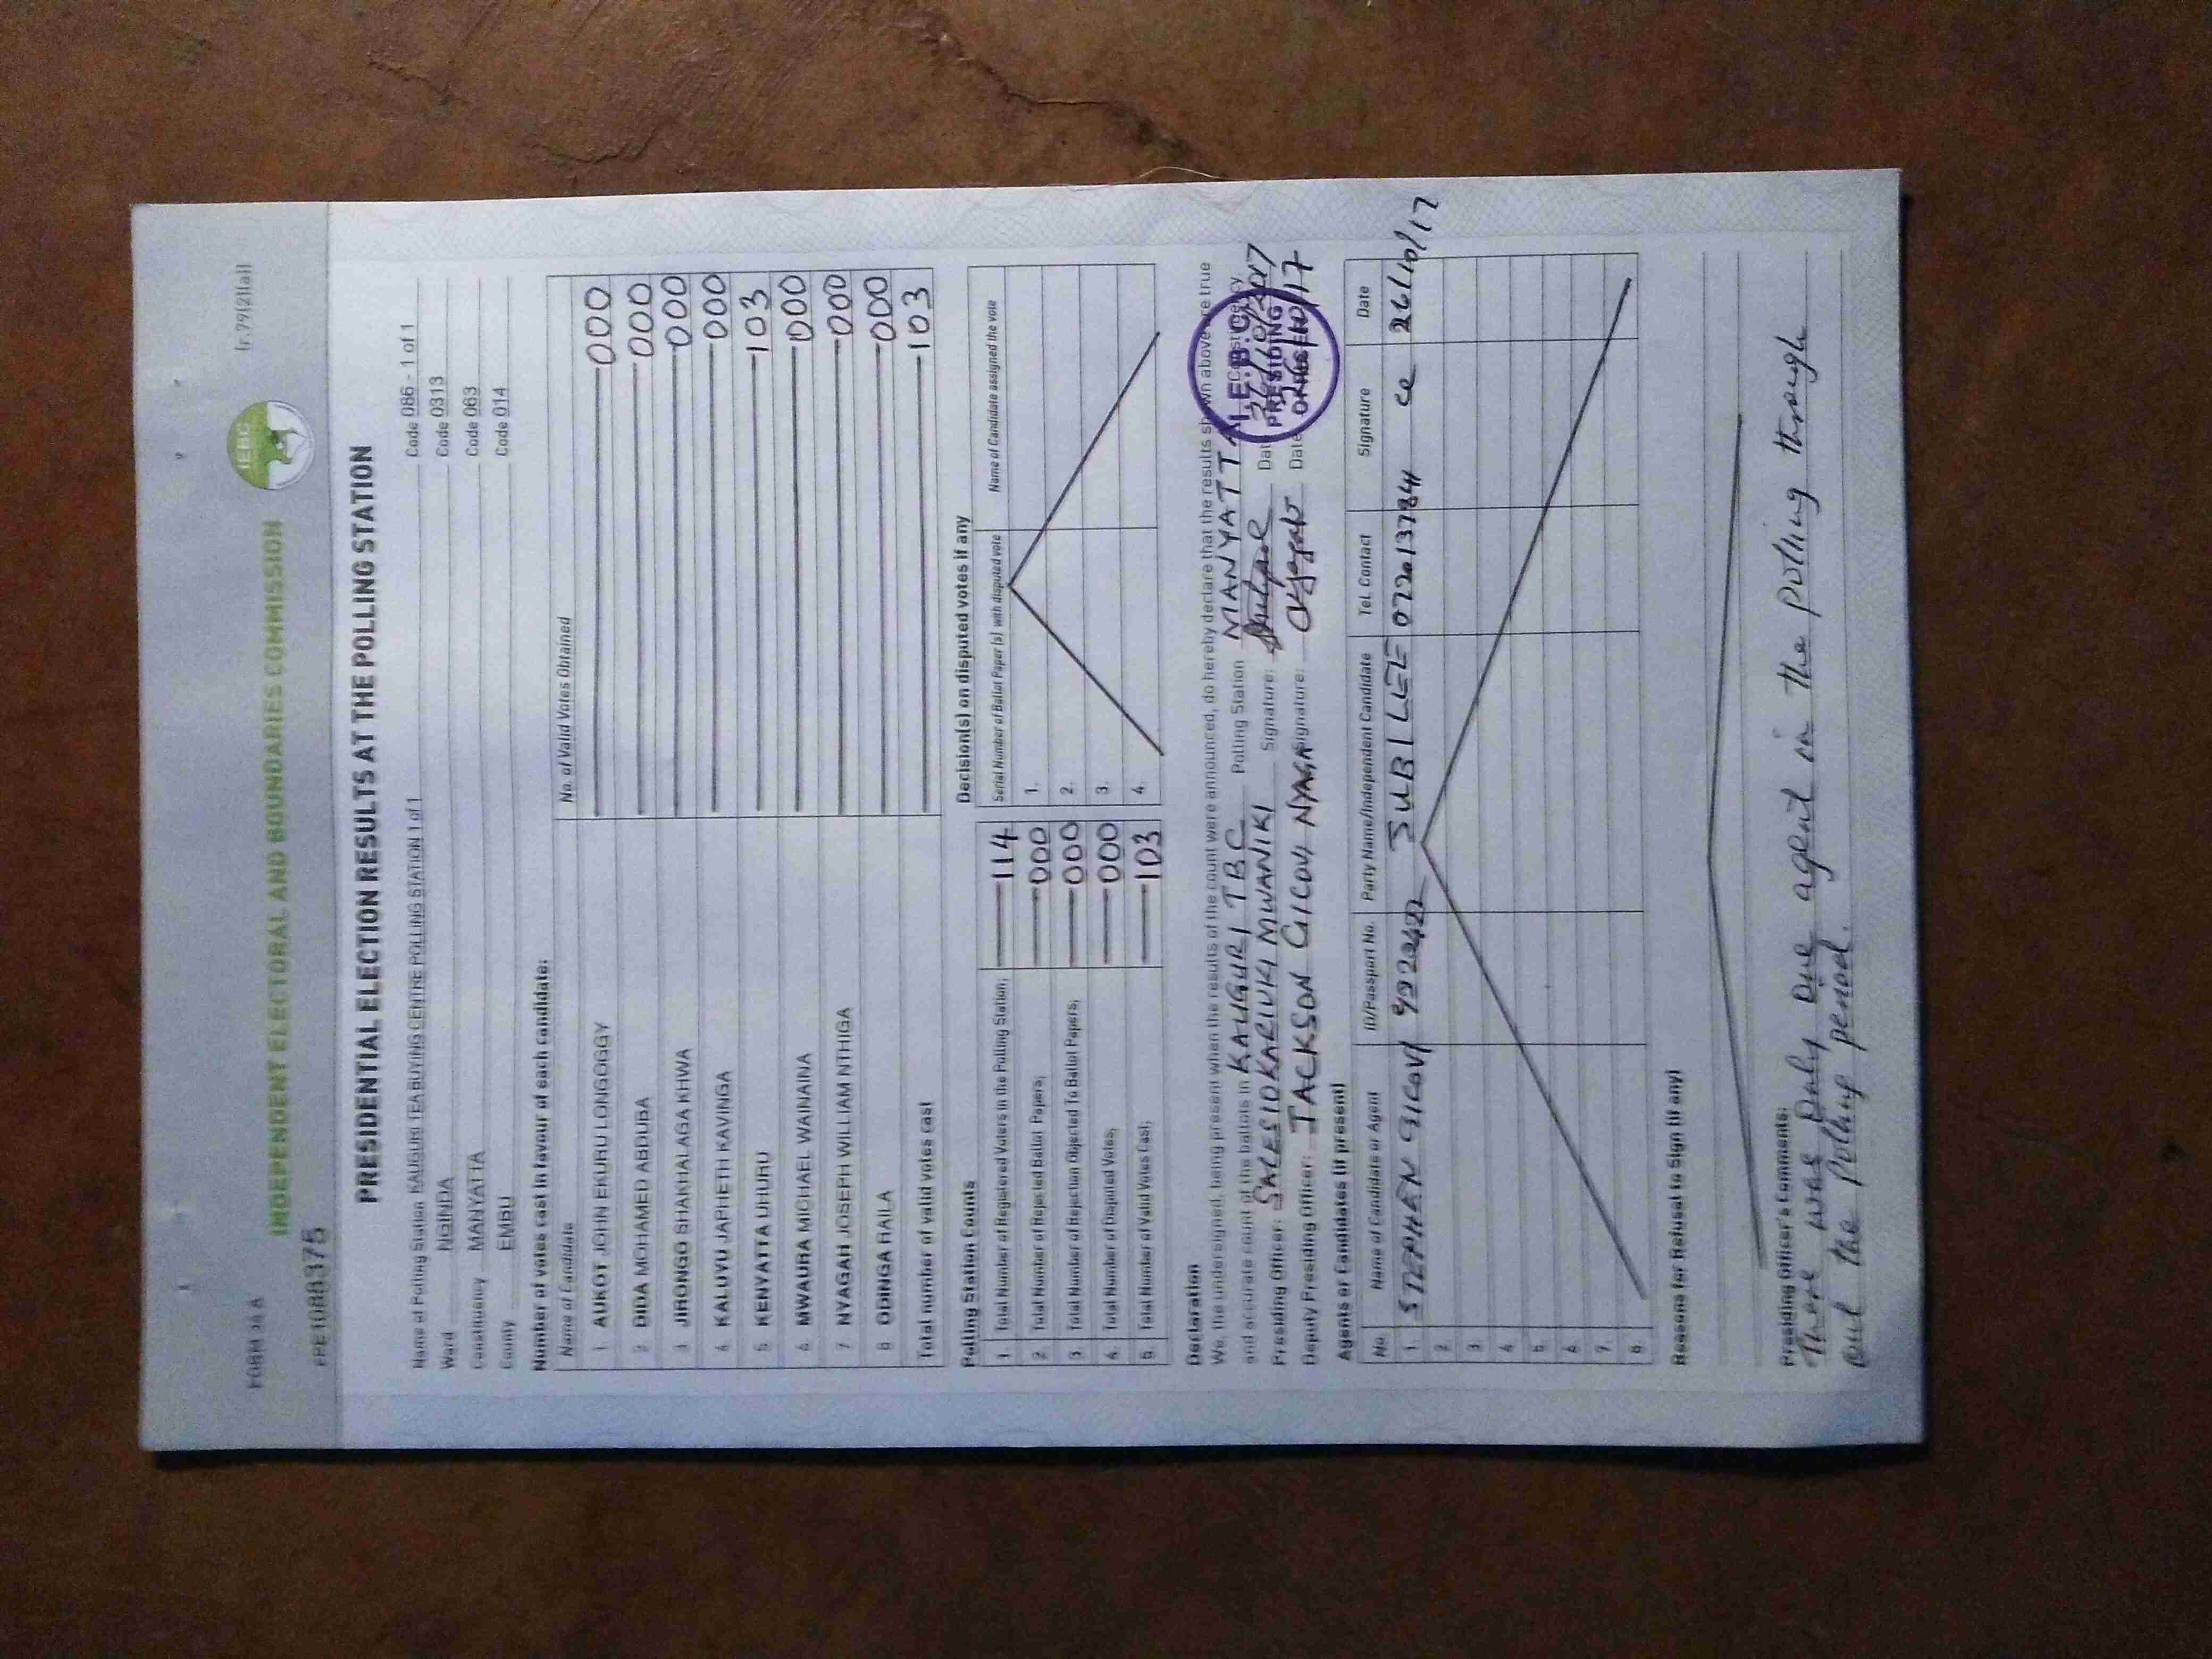 FORM 34 A
(r.79(2)(a))
INDEPENDENT ELECTORAL AND BOUNDARIES COMMISSION
IEBC
PRESIDENTIAL ELECTION RESULTS AT THE POLLING STATION
Name of Polling Station KAUGURI TEA BUYING CENTRE POLLING STATION 1 of 1 Code 086 - 1 of 1
Ward NGINDA Code 0313
Constituency MANYATTA Code 063
County EMBU Code 014
Number of votes cast in favour of each candidate:
Name of Candidate No. of Valid Votes Obtained
1 AUKOT JOHN EKURU LONGOGGY 000
2 DIDA MOHAMED ABDUBA 000
3 JIRONGO SHAKHALAGA KHWA 000
4 KALUYU JAPHETH KAVINGA 000
5 KENYATTA UHURU 103
6 MWAURA MICHAEL WAINAINA 000
7 NYAGAH JOSEPH WILLIAM NTHIGA 000
8 ODINGA RAILA 000
Total number of valid votes cast 103
Polling Station Counts
1. Total Number of Registered Voters in the Polling Station; 114
2. Total Number of Rejected Ballot Papers; 000
3. Total Number of Rejection Objected To Ballot Papers; 000
4. Total Number of Disputed Votes; 000
5. Total Number of Valid Votes Cast; 103
Decision(s) on disputed votes if any
Serial Number of Ballot Paper (s) with disputed vote Name of Candidate assigned the vote
1.
2.
3.
4.
Declaration
We, the undersigned, being present when the results of the count were announced, do hereby declare that the results shown above are true
and accurate count of the ballots in KAUGURI TBC Polling Station MANYATTA Constituency
Presiding Officer: SALESIO KARIUKI MWANIKI Signature: Date 26/10/2017
Deputy Presiding Officer: JACKSON GICOVI NYAGA Signature: Date 26/10/17
I.E.B.C.
PRESIDING
OFFICER
Agents or Candidates (if present)
No. Name of Candidate or Agent ID/Passport No. Party Name/Independent Candidate Tel. Contact Signature Date
1. STEPHEN GICOVI JUBILEE 26/10/17
2.
3.
4.
5.
6.
7.
8.
Reasons for Refusal to Sign (if any)
Presiding Officer's Comments:
There was only one agent in the polling through
out the polling period.